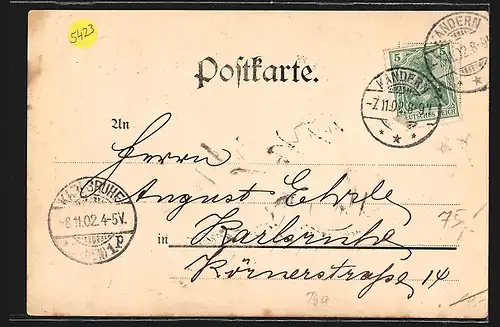 5423
KANDERN
5
Postkarte.
KANDERN
-7.11.02.8-9V.
DEUTSCHES REICH
An
Herrn
August Ehrle
KARLSRUHE
-8.11.02.4-5V.
1.p
in Karlsruhe
75/
Körnerstraße 14